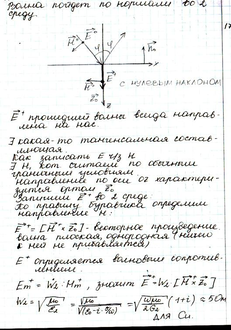 Волна пойдет по нормали во 2
среду.
17
E⁺
H
φ φ
n
E
С НУЛЕВЫМ НАКЛОНОМ
H
Z₀
E⁺ прошедшей волны всегда направ-
лена на нас
∃ какая-то тангенсальная состав-
ляющая.
Как записать E ч/з H
∃ H, кот считаем по
граничным условиям.
Направление по оси oz характери-
зуется ортом z₀
Запишем E⁺ во 2 среде
По правилу буравчика определим
направление H:
E⁺ = [H⁺ × z₀] - векторное произведение
волна плоская, однородная (ничего
к ней не привавляется)
E⁺ определяется волновым сопротив-
лением.
Em⁺ = W₂ · Hm⁺, значит E⁺ = W₂ [H⁺ × z₀]
для Cu.